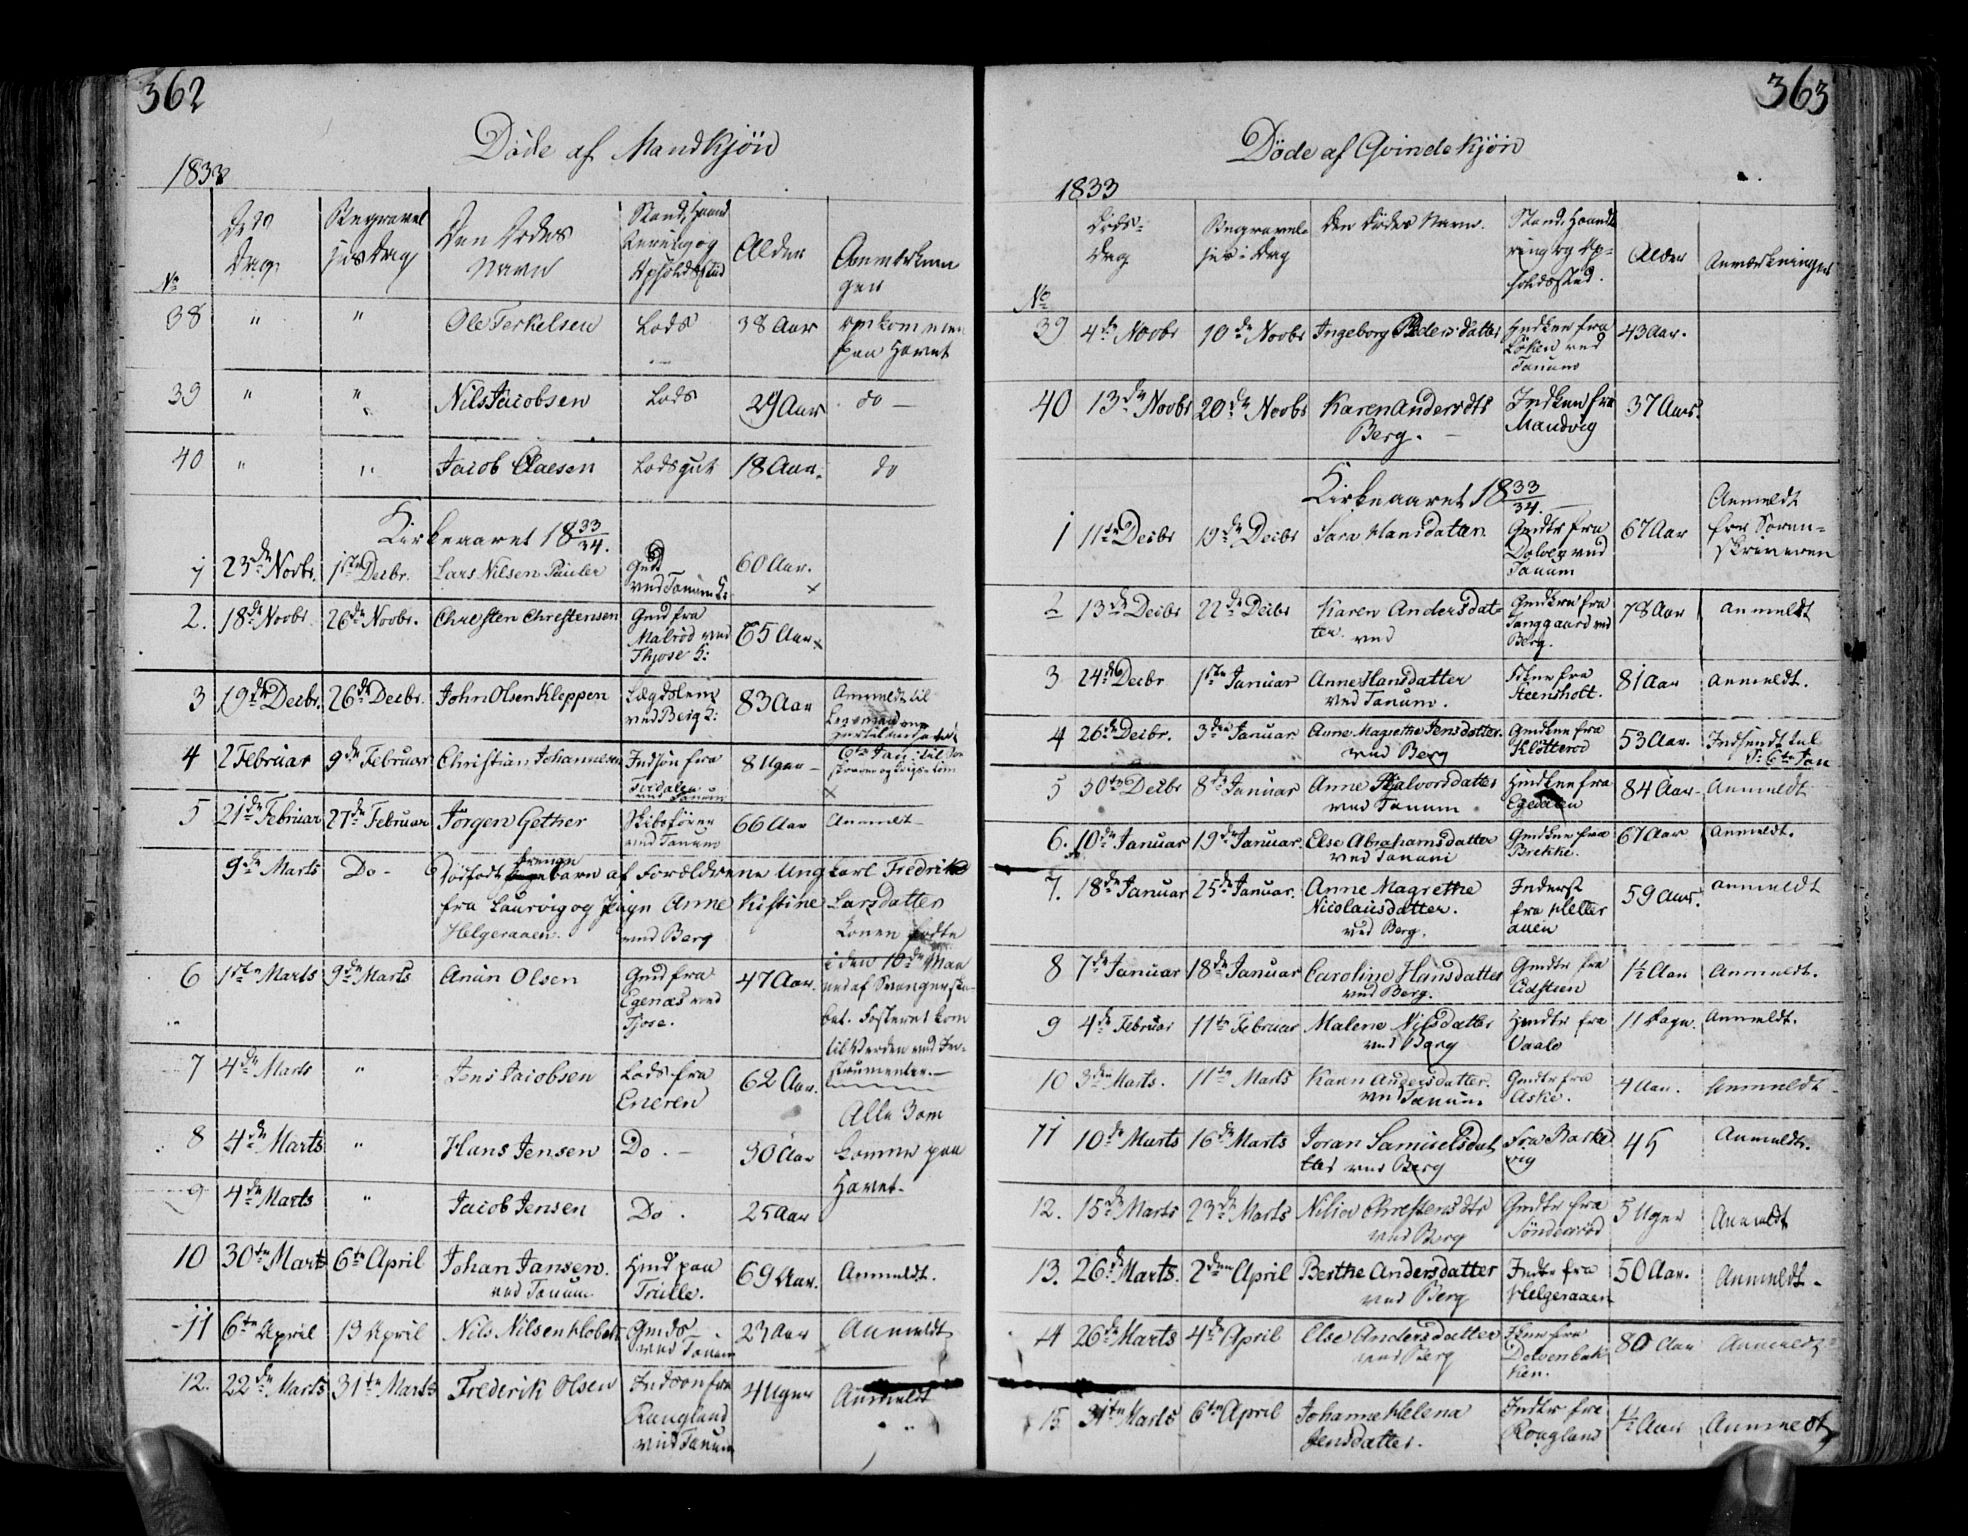 362
Døde af Mandkjøn
1833
No
Døds
Dag
Begravel
ses Dag
Den Dødes
Navn
Stand, Haand
tering og
Opholdssted
Alder
Anmærknin
ger
38 " " Ole Terkelsen Lods 38 Aar omkommen
paa Havet
39 " " Nils Jacobsen Lods 29 Aar do —
40 " " Jacob Claesen Lodsgut 18 Aar. do
Kirkeaaret 18 33/34.
1 23de Novbr. 1ste Decbr. Lars Nilsen Pauler Gmd
ved Tanum K: 60 Aar.
2. 18de Novbr. 26de Novbr. Christen Christensen Gmd fra
Malerød ved
Thjose K: 65 Aar
3 19de Decbr. 26de Decbr. John Olsen Kleppen Lægdslem
ved Berg K: 83 Aar Anmeldt til
4 2 Februar 9de Februar Christian Johannesen Indsøn fra
ved Tanum 8 Uger
5 21de Februar 27de Februar Jørgen Gether Skibsfører
ved Tanum 66 Aar Anmeldt
9de Marts Do - Dødfødt Drengebarn af Forældrene Ung Karl Fredrik
fra Laurvig og Pigen Anne Kistine Larsdatter
Helgeraaen. ved Berg
Konen fødte
i den 10de Maa
ned af Svangerska-
bet. Fosteret kom
til Verden ved In-
strumenter. —
6 1ste Marts 9de Marts Anun Olsen Gmd fra
Egenæs ved
Tjose. 47 Aar.
7 4de Marts " Jens Jacobsen Lods fra
Eneren 62 Aar.
Alle 3 om
komne paa
Havet.
8 4de Marts " Hans Jensen Do. - 30 Aar
9 4de Marts " Jacob Jensen Do. 25 Aar
10 30te Marts 6te April Johan Jansen.
ved Tanum Hmd paa
Trulle. 69 Aar. Anmeldt.
11 6te April 13 April Nils Nilsen Gmds
ved Tanum 23 Aar Anmeldt
12. 22de Marts 31te Marts Frederik Olsen Indsøn fra
Rougland
ved Tanum 4 Uger Anmeldt
363
Døde af Qvindekjøn
1833
No
Døds-
Dag
Begravel-
ses-Dag
Den Dødes Navn.
Stand, Haandte
ring og Op-
holdssted.
Alder
Anmærkninger
39 4de Novbr 10de Novbr Ingeborg Pedersdatter Hmdken fra
Løken ved
Tanum 43 Aar.
40 13de Novbr 20de Novbr Karen Andersdtr
Berg. — Indken fra
Mandvig 37 Aar.
Kirkeaaret 18 33/34. —
1 11te Decbr 19de Decbr Sara Hansdatter Gmdtr fra
Dolven ved
Tanum 67 Aar Anmeldt
for Soren-
skriveren
2 13de Decbr 22de Decbr Karen Andersdat-
ter ved Gmdken fra
Fanggaard ved
Berg. 78 Aar anmeldt
3 24de Decbr 1ste Januar Anne Hansdatter
ved Tanum. Fken fra
Steensholt. 81 Aar anmeldt.
4 26de Decbr. 3den Januar Anne Magrethe Jensdatter.
ved Berg Gmdken fra
Kløtterød 53 Aar. Indsendt til
5 30te Decbr 8de Januar Anne Halvorsdatter
ved Tanum Hmdken fra
Egedalen 84 Aar Anmeldt
6. 10de Januar 19de Januar. Else Abrahamsdatter
ved Tanum Gmdken fra
Brekke. 67 Aar anmeldt.
7. 18de Januar 25de Januar. Anne Magrethe
Nicolaisdatter.
ved Berg. Inderst
fra Heller
aaen 59 Aar. anmeldt
8 7de Januar 18de Januar Caroline Hansdatter
ved Berg. Gmdtr fra
Eidsteen 1½ Aar Anmeldt.
9 4de Februar 11te Februar Malene Nilsdatter
ved Berg Hmdtr fra
Vaale 11 Dage. Anmeldt.
10 3den Marts. 11te Marts Karn Andersdatter.
ved Tanum. Gmdtr fra
Aske. 4 Aar. Anmeldt
11 10de Marts 16de Marts Joran Samuelsdat
ter ved Berg fra Barke
vig 45 Anmeldt.
12. 15de Marts 23de Marts Nilia Chrestensdtr
ved Berg Gmdtr fra
Sønderrød 5 Uger Anmeldt
13. 26de Marts. 2den April Berthe Andersdatter
ved Berg Indtr fra
Helgeraaen 50 Aar. Anmeldt -
14 26de Marts 4de April Else Andersdatter
ved Berg Fken fra
Dolvenbak
ken. 80 Aar Anmeldt
15 31te Marts 6te April Johanne Helena
Jensdatter. Indtr fra
Rougland 1½ Aar Anmeldt